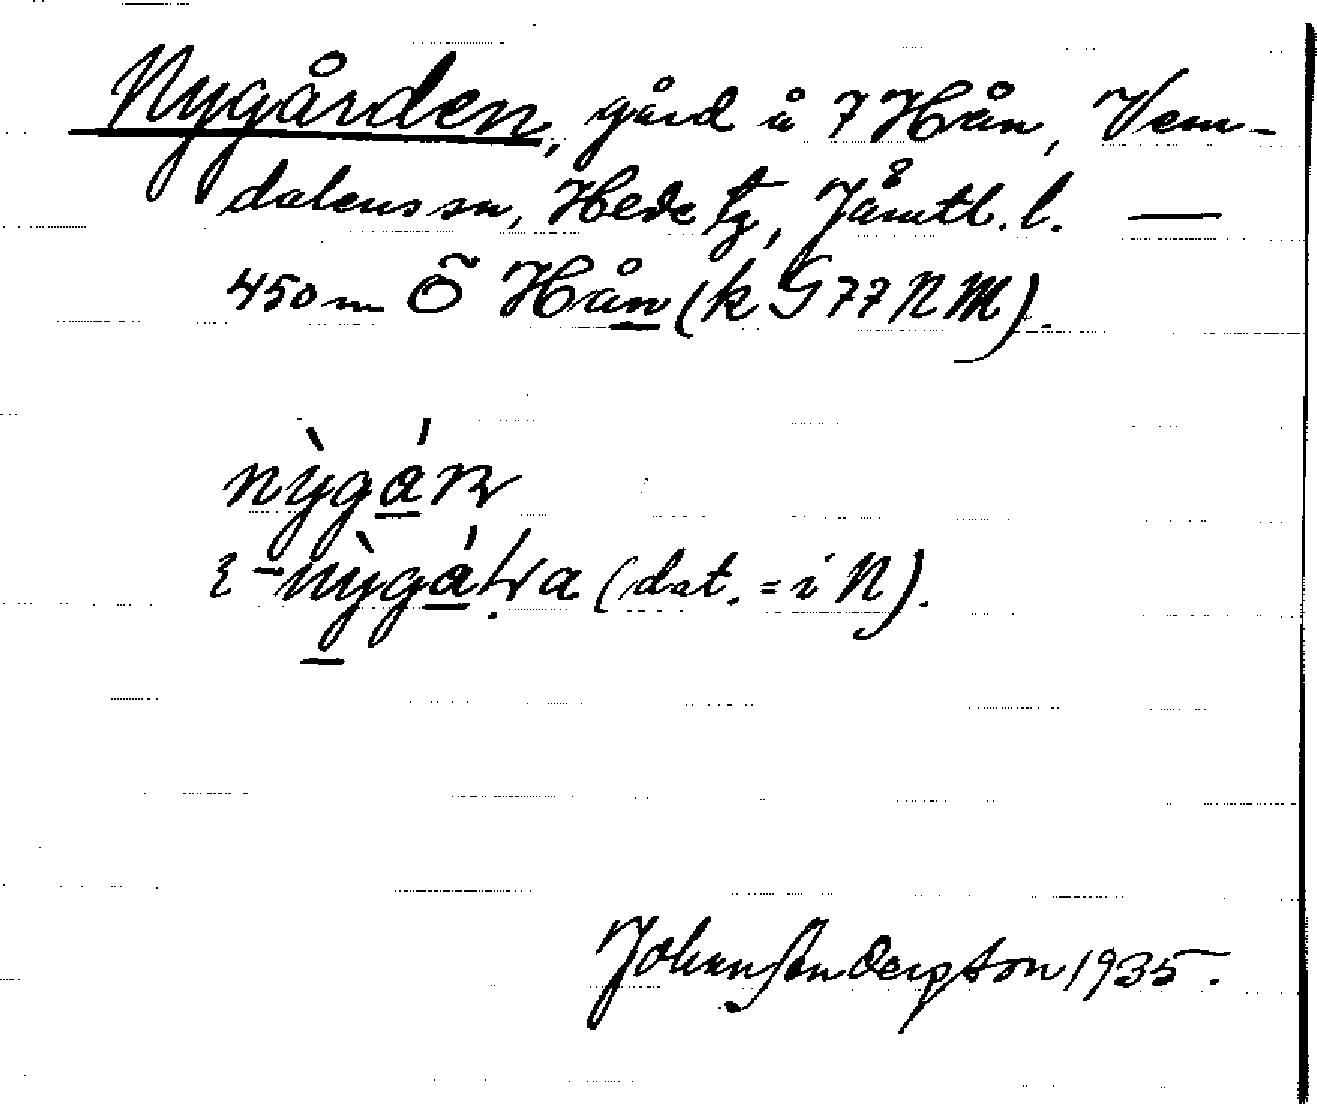 Nygården, gård å 7 Hån, Vem-
dalens sn, Hede tg, Jämtl. l. —
450 m Ö Hån (k G 77 N M).
nỳgáṉ
ɩ -nỳgátra (dat. = i N).
Johan Anderson 1935.